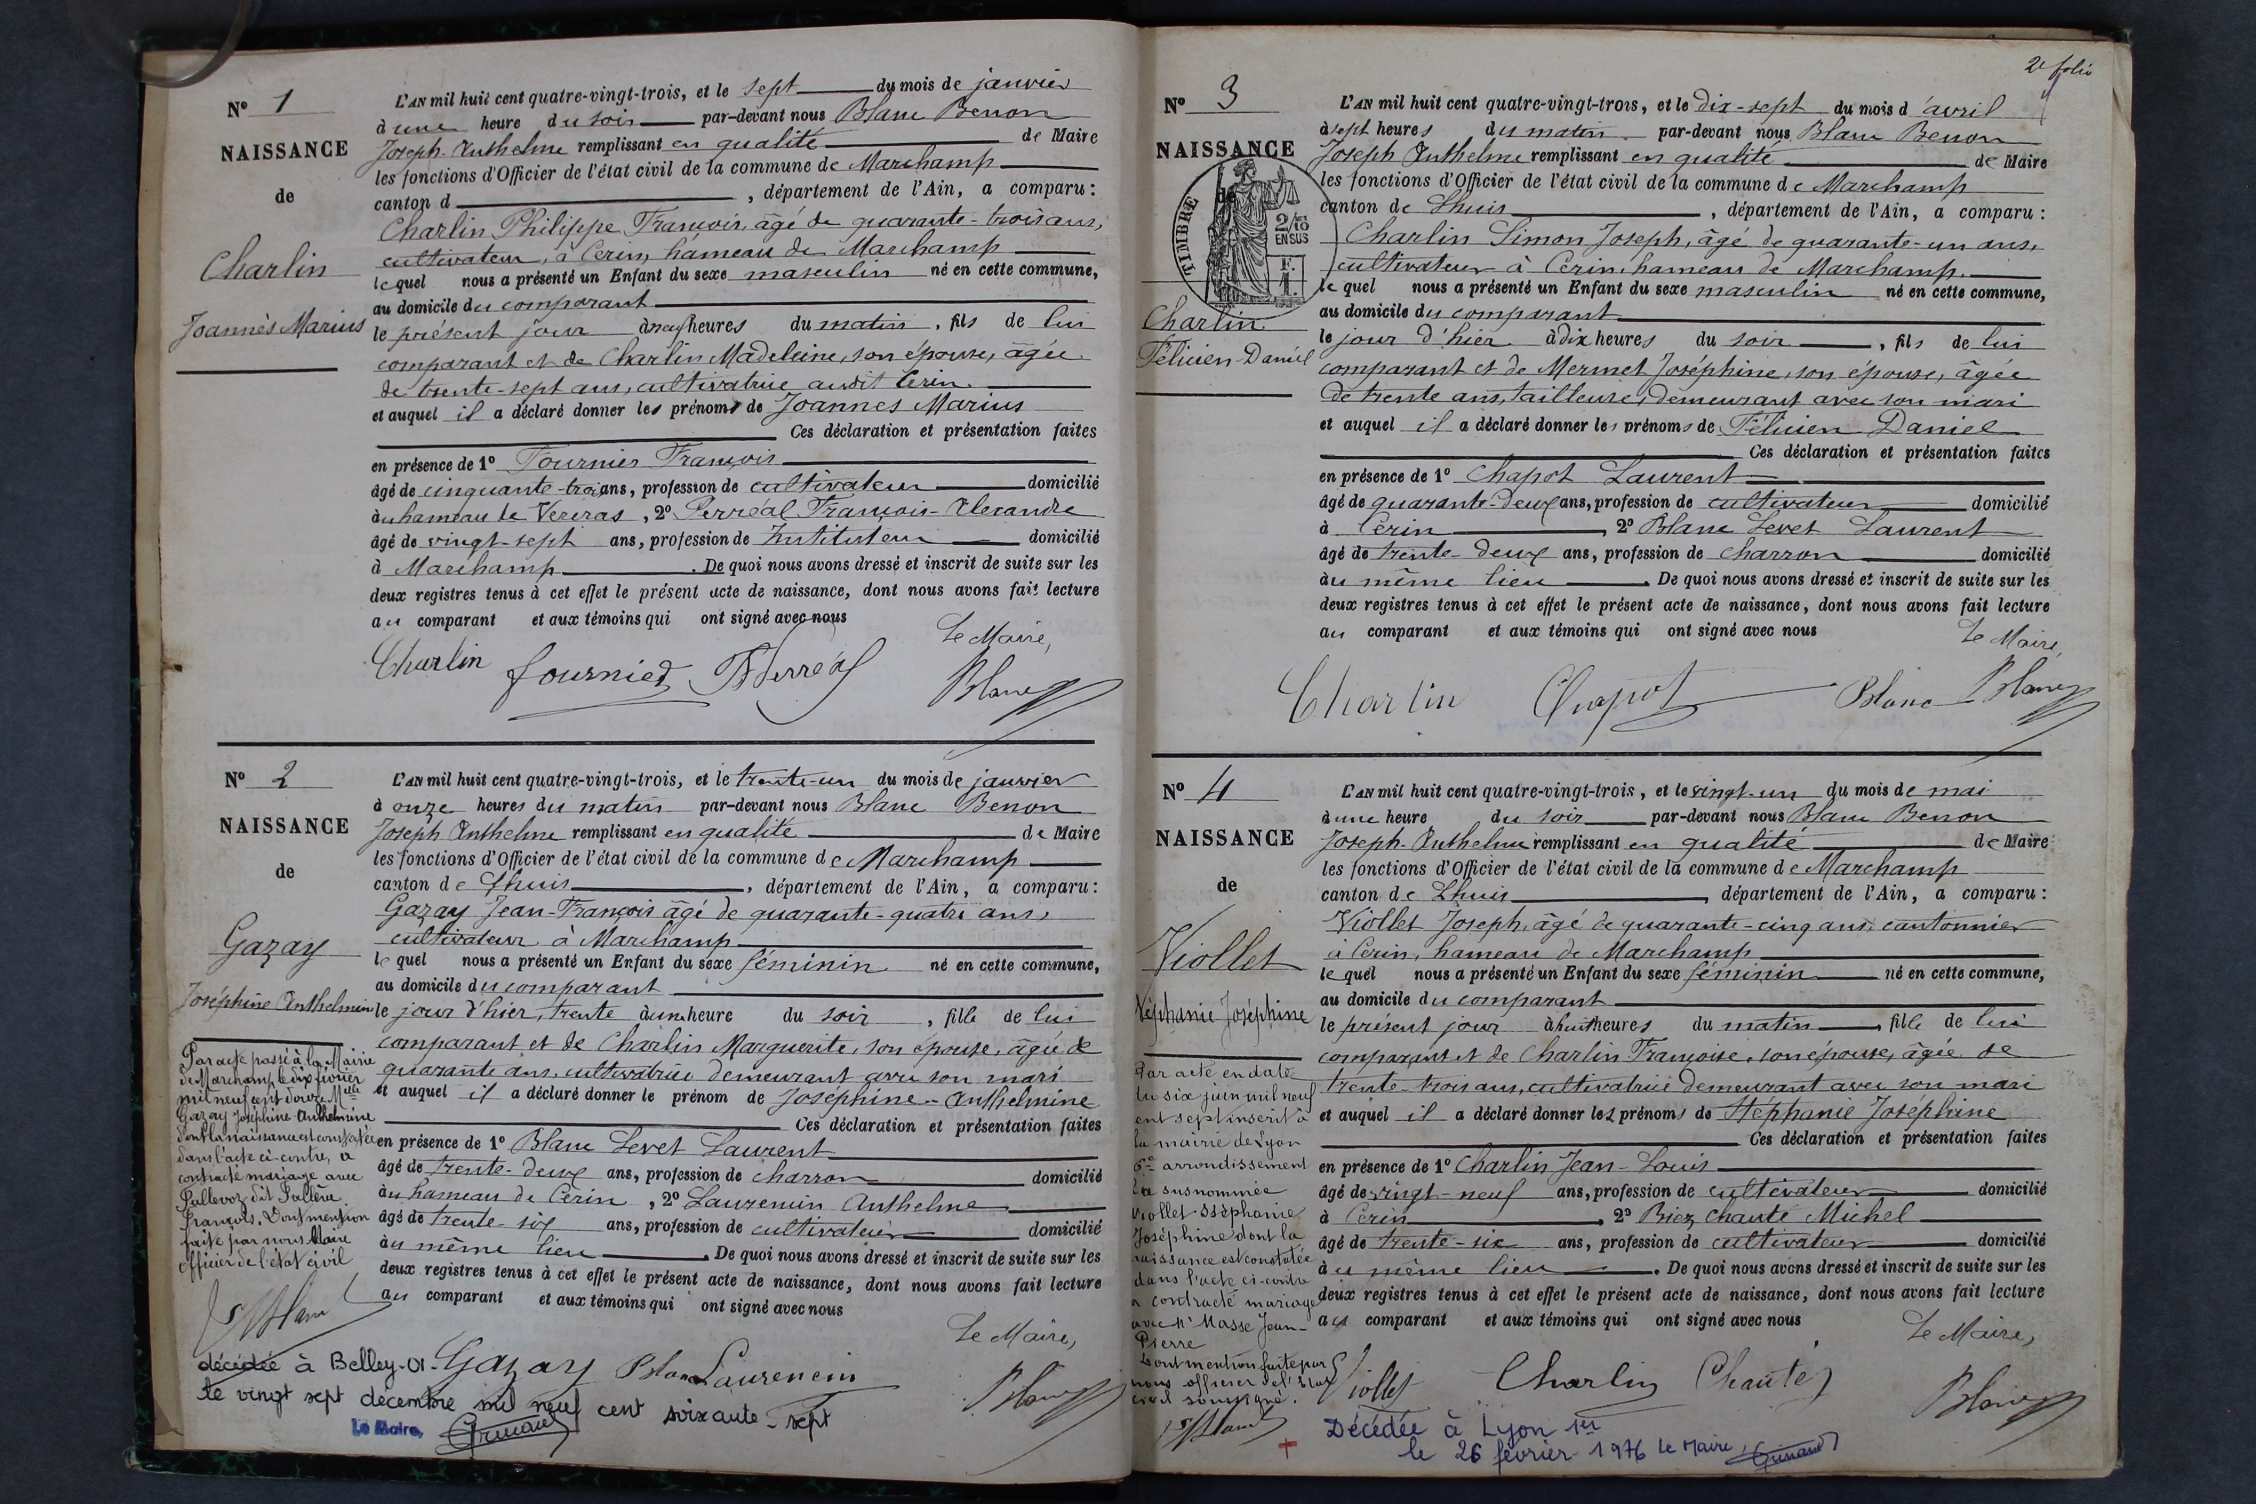 N° 1
NAISSANCE
de
Charlin
Joannès Marius
L'AN mil huit cent quatre-vingt-trois, et le sept du mois de janvier
à une heure du soir par-devant nous Blanc Benon
Joseph Anthelme remplissant en qualité de Maire
les fonctions d'Officier de l'état civil de la commune de Marchamp
canton d , département de l'Ain, a comparu :
Charlin Philippe François, âgé de quarante-trois ans,
cultivateur, à Cerin, hameau de Marchamp
lequel nous a présenté un Enfant du sexe masculin né en cette commune,
au domicile du comparant
le présent jour à neuf heures du matin, fils de lui
comparant et de Charlin Madeleine, son épouse, âgée
de trente-sept ans, cultivatrice audit Cerin.
et auquel il a déclaré donner les prénoms de Joannes Marius
Ces déclaration et présentation faites
en présence de 1° Fournier François
âgé de cinquante-trois ans, profession de cultivateur domicilié
au hameau de , 2° Perréal François-Alexandre
âgé de vingt-sept ans, profession de Instituteur domicilié
à Marchamp. De quoi nous avons dressé et inscrit de suite sur les
deux registres tenus à cet effet le présent acte de naissance, dont nous avons fait lecture
au comparant et aux témoins qui ont signé avec nous
Le Maire,
Charlin Fournier Perréal Blanc
N° 2
NAISSANCE
de
Gazay
Joséphine Anthelmine
L'AN mil huit cent quatre-vingt-trois, et le trente-un du mois de janvier
à onze heures du matin par-devant nous Blanc Benon
Joseph Anthelme remplissant en qualité de Maire
les fonctions d'Officier de l'état civil de la commune de Marchamp
canton de Lhuis, département de l'Ain, a comparu :
Gazay Jean-François âgé de quarante-quatre ans,
cultivateur à Marchamp
lequel nous a présenté un Enfant du sexe féminin né en cette commune,
au domicile du comparant
le jour d'hier, trente à une heure du soir, fille de lui
comparant et de Charlin Marguerite, son épouse, âgée de
quarante ans, cultivatrice demeurant avec son mari
et auquel il a déclaré donner le prénom de Joséphine-Anthelmine
Ces déclaration et présentation faites
en présence de 1° Blanc Levet Laurent
âgé de trente-deux ans, profession de charron domicilié
au hameau de Cerin, 2° Laurencin Anthelme
âgé de trente-six ans, profession de cultivateur domicilié
au même lieu. De quoi nous avons dressé et inscrit de suite sur les
deux registres tenus à cet effet le présent acte de naissance, dont nous avons fait lecture
au comparant et aux témoins qui ont signé avec nous
Le Maire,
Gazay Blanc Laurencin Blanc
Par acte passé à la Mairie
de Marchamp, le dix février
mil neuf cent douze Melle
Gazay Joséphine Anthelmine
dont la naissance est constatée
dans l'acte ci-contre, a
contracté mariage avec
Pallevoz dit
François. Dont mention
faite par nous Maire
officier de l'état civil
Blanc
décédée à Belley-01-
le vingt sept décembre mil neuf cent soixante-sept
Le Maire,
2e folio
N° 3
NAISSANCE
de
TIMBRE
2/10
EN SUS
F.
1.
Charlin
Félicien-Daniel
L'AN mil huit cent quatre-vingt-trois, et le dix-sept du mois d'avril
à sept heures du matin par-devant nous Blanc Benon
Joseph Anthelme remplissant en qualité de Maire
les fonctions d'Officier de l'état civil de la commune de Marchamp
canton de Lhuis, département de l'Ain, a comparu :
Charlin Simon Joseph, âgé de quarante-un ans,
cultivateur à Cerin, hameau de Marchamp.
lequel nous a présenté un Enfant du sexe masculin né en cette commune,
au domicile du comparant
le jour d'hier à dix heures du soir, fils de lui
comparant et de Mermet Joséphine, son épouse, âgée
de trente ans, tailleuse, demeurant avec son mari
et auquel il a déclaré donner les prénoms de Félicien Daniel
Ces déclaration et présentation faites
en présence de 1° Chapot Laurent
âgé de quarante-deux ans, profession de cultivateur domicilié
à Cerin, 2° Blanc Levet Laurent
âgé de trente-deux ans, profession de charron domicilié
au même lieu. De quoi nous avons dressé et inscrit de suite sur les
deux registres tenus à cet effet le présent acte de naissance, dont nous avons fait lecture
au comparant et aux témoins qui ont signé avec nous
Le Maire,
Charlin Chapot Blanc Blanc
N° 4
NAISSANCE
de
Viollet
Stéphanie Joséphine
L'AN mil huit cent quatre-vingt-trois, et le vingt-un du mois de mai
à une heure du soir par-devant nous Blanc Benon
Joseph-Anthelme remplissant en qualité de Maire
les fonctions d'Officier de l'état civil de la commune de Marchamp
canton de Lhuis, département de l'Ain, a comparu :
Viollet Joseph, âgé de quarante-cinq ans cantonnier
à Cerin, hameau de Marchamp
lequel nous a présenté un Enfant du sexe féminin né en cette commune,
au domicile du comparant
le présent jour à huit heures du matin, fille de lui
comparant et de Charlin Françoise, son épouse, âgée de
trente-trois ans, cultivatrice demeurant avec son mari
et auquel il a déclaré donner les prénoms de Stéphanie Joséphine
Ces déclaration et présentation faites
en présence de 1° Charlin Jean-Louis
âgé de vingt-neuf ans, profession de cultivateur domicilié
à Cerin, 2° Chanté Michel
âgé de trente-six ans, profession de cultivateur domicilié
au même lieu. De quoi nous avons dressé et inscrit de suite sur les
deux registres tenus à cet effet le présent acte de naissance, dont nous avons fait lecture
au comparant et aux témoins qui ont signé avec nous
Le Maire,
Viollet Charlin Chanté Blanc
Par acte en date
du six juin mil neuf
cent sept inscrit à
la mairie de Lyon
6me arrondissement
la susnommée
Viollet Stéphanie
Joséphine dont la
naissance est constatée
dans l'acte ci-contre
a contracté mariage
avec Mr Masse Jean-
Pierre
Dont mention faite par
nous officier de l'état
civil soussigné.
Blanc
Décédée à Lyon 1er
le 26 février 1976 Le Maire,